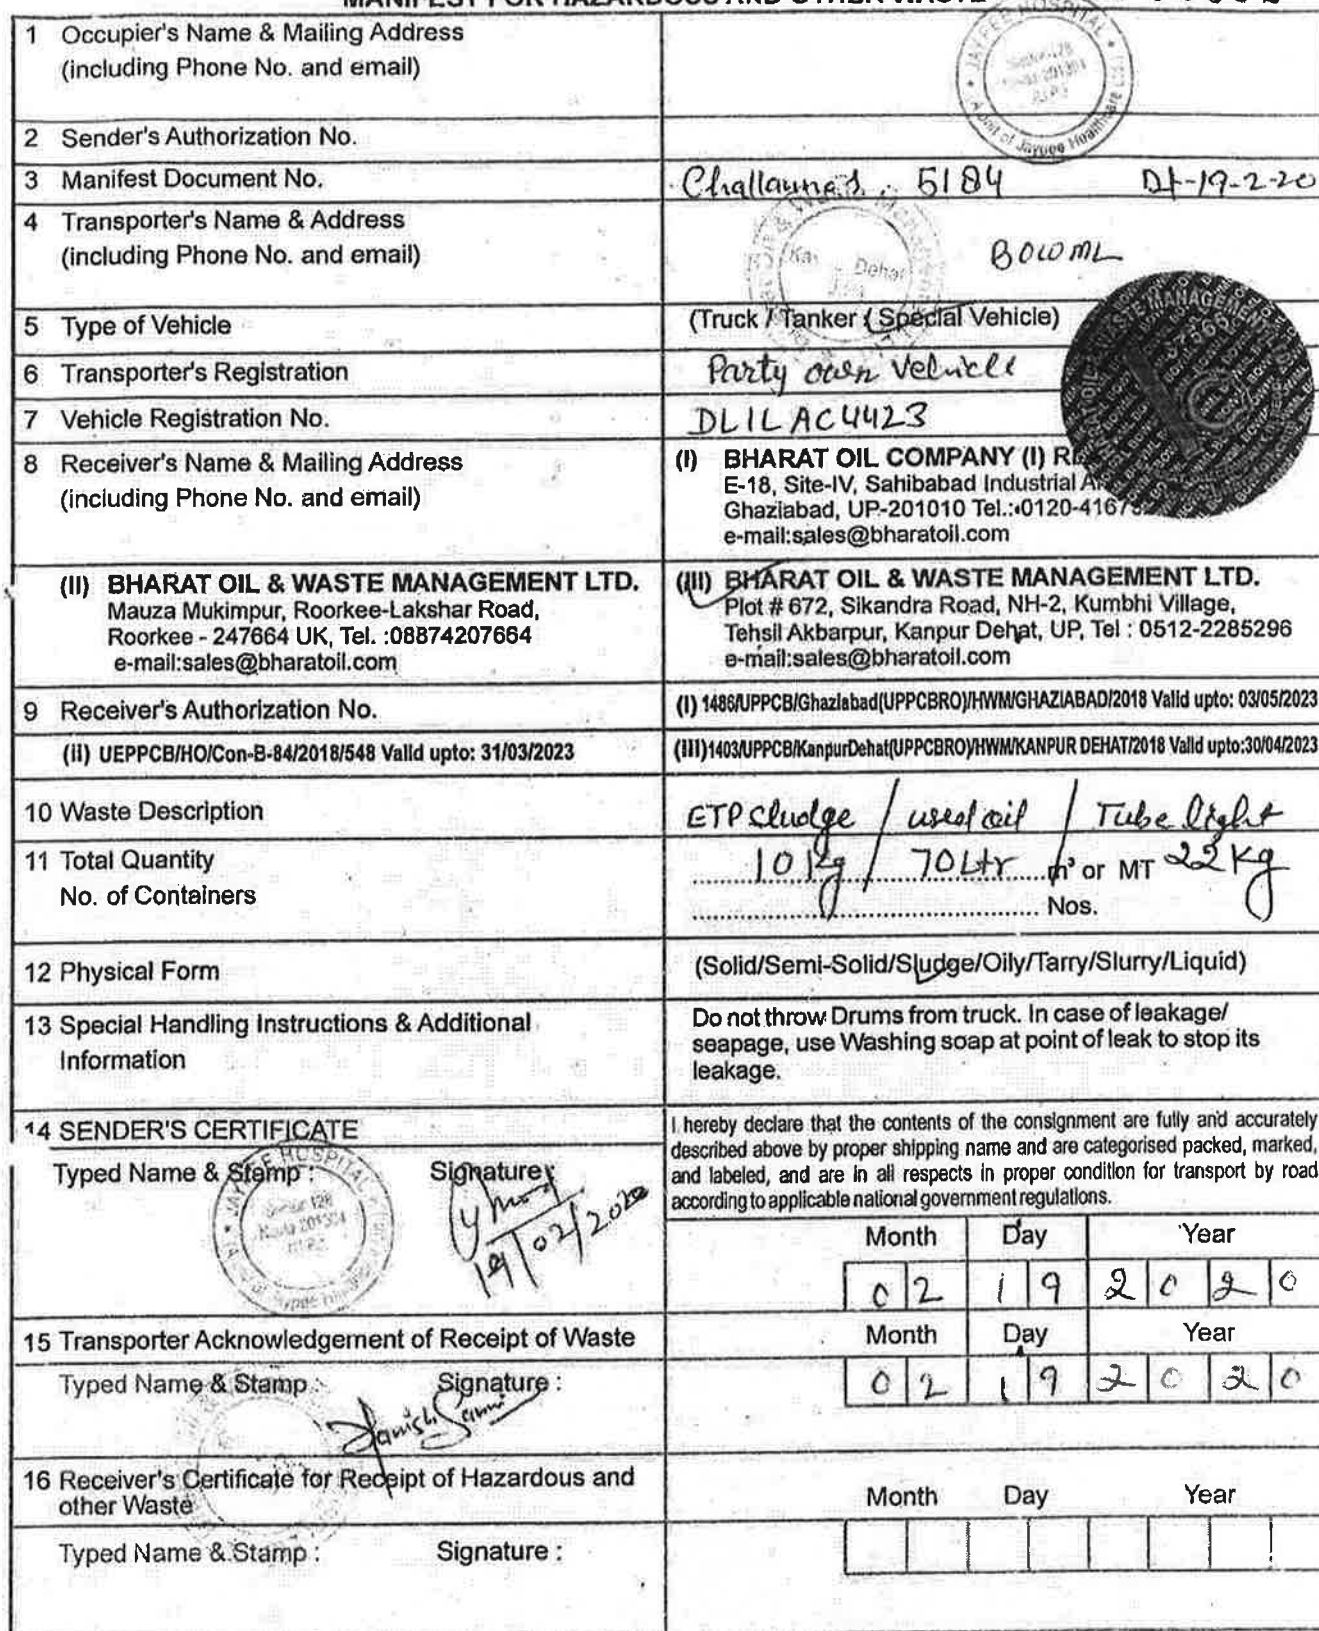 MANIFEST FOR HAZARDOUS AND OTHER WASTE
1 Occupier's Name & Mailing Address
(including Phone No. and email)
JAYPEE HOSPITAL
A Unit of Jaypee Healthcare
2 Sender's Authorization No.
3 Manifest Document No.
5184 Dt-19-2-20
4 Transporter's Name & Address
(including Phone No. and email)
BOWML
5 Type of Vehicle
(Truck / Tanker (Special Vehicle)
6 Transporter's Registration
Party own Vehicle
7 Vehicle Registration No.
DL1LAC4423
8 Receiver's Name & Mailing Address
(including Phone No. and email)
(I) BHARAT OIL COMPANY (I)
E-18, Site-IV, Sahibabad Industrial
Ghaziabad, UP-201010 Tel.:0120-4167
e-mail:sales@bharatoil.com
(II) BHARAT OIL & WASTE MANAGEMENT LTD.
Mauza Mukimpur, Roorkee-Lakshar Road,
Roorkee - 247664 UK, Tel. :08874207664
e-mail:sales@bharatoil.com
(III) BHARAT OIL & WASTE MANAGEMENT LTD.
Plot # 672, Sikandra Road, NH-2, Kumbhi Village,
Tehsil Akbarpur, Kanpur Dehat, UP, Tel : 0512-2285296
e-mail:sales@bharatoil.com
9 Receiver's Authorization No.
(I) 1486/UPPCB/Ghaziabad(UPPCBRO)/HWM/GHAZIABAD/2018 Valid upto: 03/05/2023
(ii) UEPPCB/HO/Con-B-84/2018/548 Valid upto: 31/03/2023
(III)1403/UPPCB/KanpurDehat(UPPCBRO)/HWM/KANPUR DEHAT/2018 Valid upto:30/04/2023
10 Waste Description
ETP Sludge / used oil / Tube light
11 Total Quantity
10 kg / 70 Ltr m³ or MT 22 Kg
No. of Containers
Nos.
12 Physical Form
(Solid/Semi-Solid/Sludge/Oily/Tarry/Slurry/Liquid)
13 Special Handling Instructions & Additional
Information
Do not throw Drums from truck. In case of leakage/
seapage, use Washing soap at point of leak to stop its
leakage.
14 SENDER'S CERTIFICATE
Typed Name & Stamp : Signature :
JAYPEE HOSPITAL
Sector 128
Noida 201304
19/02/2020
I hereby declare that the contents of the consignment are fully and accurately
described above by proper shipping name and are categorised packed, marked,
and labeled, and are in all respects in proper condition for transport by road
according to applicable national government regulations.
Month Day Year
02 19 2020
15 Transporter Acknowledgement of Receipt of Waste
Month Day Year
02 19 2020
Typed Name & Stamp : Signature :
16 Receiver's Certificate for Receipt of Hazardous and
other Waste
Month Day Year
Typed Name & Stamp : Signature :